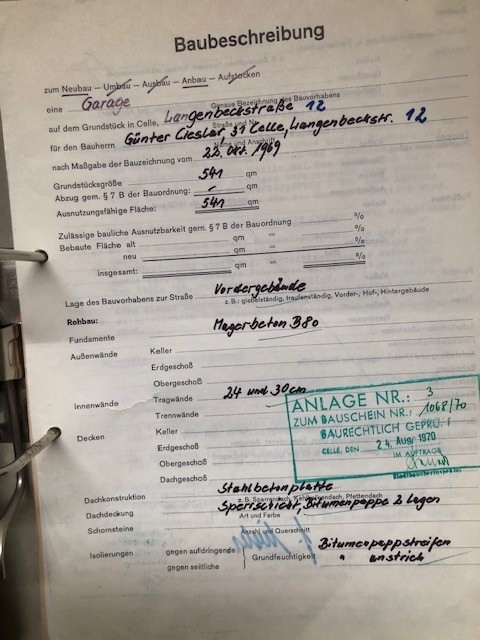 Baubeschreibung
zum Neubau – Umbau – Ausbau – Anbau – Aufstocken
eine Garage
Genaue Bezeichnung des Bauvorhabens
auf dem Grundstück in Celle, Langenbeckstraße 12
Straße und Nr.
für den Bauherrn Günter Cieslar, 31 Celle, Langenbeckstr. 12
Name und Anschrift
nach Maßgabe der Bauzeichnung vom 22. Okt. 1969
Grundstücksgröße 541 qm
Abzug gem. § 7 B der Bauordnung: – qm
Ausnutzungsfähige Fläche: 541 qm
Zulässige bauliche Ausnutzbarkeit gem. § 7 B der Bauordnung %
Bebaute Fläche alt qm = %
neu qm = %
insgesamt: qm = %
Lage des Bauvorhabens zur Straße Vordergebäude
z. B.: giebelständig, traufenständig, Vorder-, Hof-, Hintergebäude
Rohbau:
Fundamente Magerbeton B80
Außenwände Keller
Erdgeschoß
Obergeschoß
Innenwände Tragwände 24 und 30 cm
Trennwände
Decken Keller
Erdgeschoß
Obergeschoß
Dachgeschoß
ANLAGE NR.: 3
ZUM BAUSCHEIN NR.: 1068/70
BAURECHTLICH GEPRÜFT
CELLE, DEN 24. Aug. 1970
IM AUFTRAGE
Dachkonstruktion Stahlbetonplatte
z. B. Sparrendach, Kehlbalkendach, Pfettendach
Dachdeckung Sperrschicht, Bitumenpappe 2 Lagen
Art und Farbe
Schornsteine
Anzahl und Querschnitt
Isolierungen gegen aufdringende Grundfeuchtigkeit Bitumenpappstreifen
gegen seitliche " anstrich